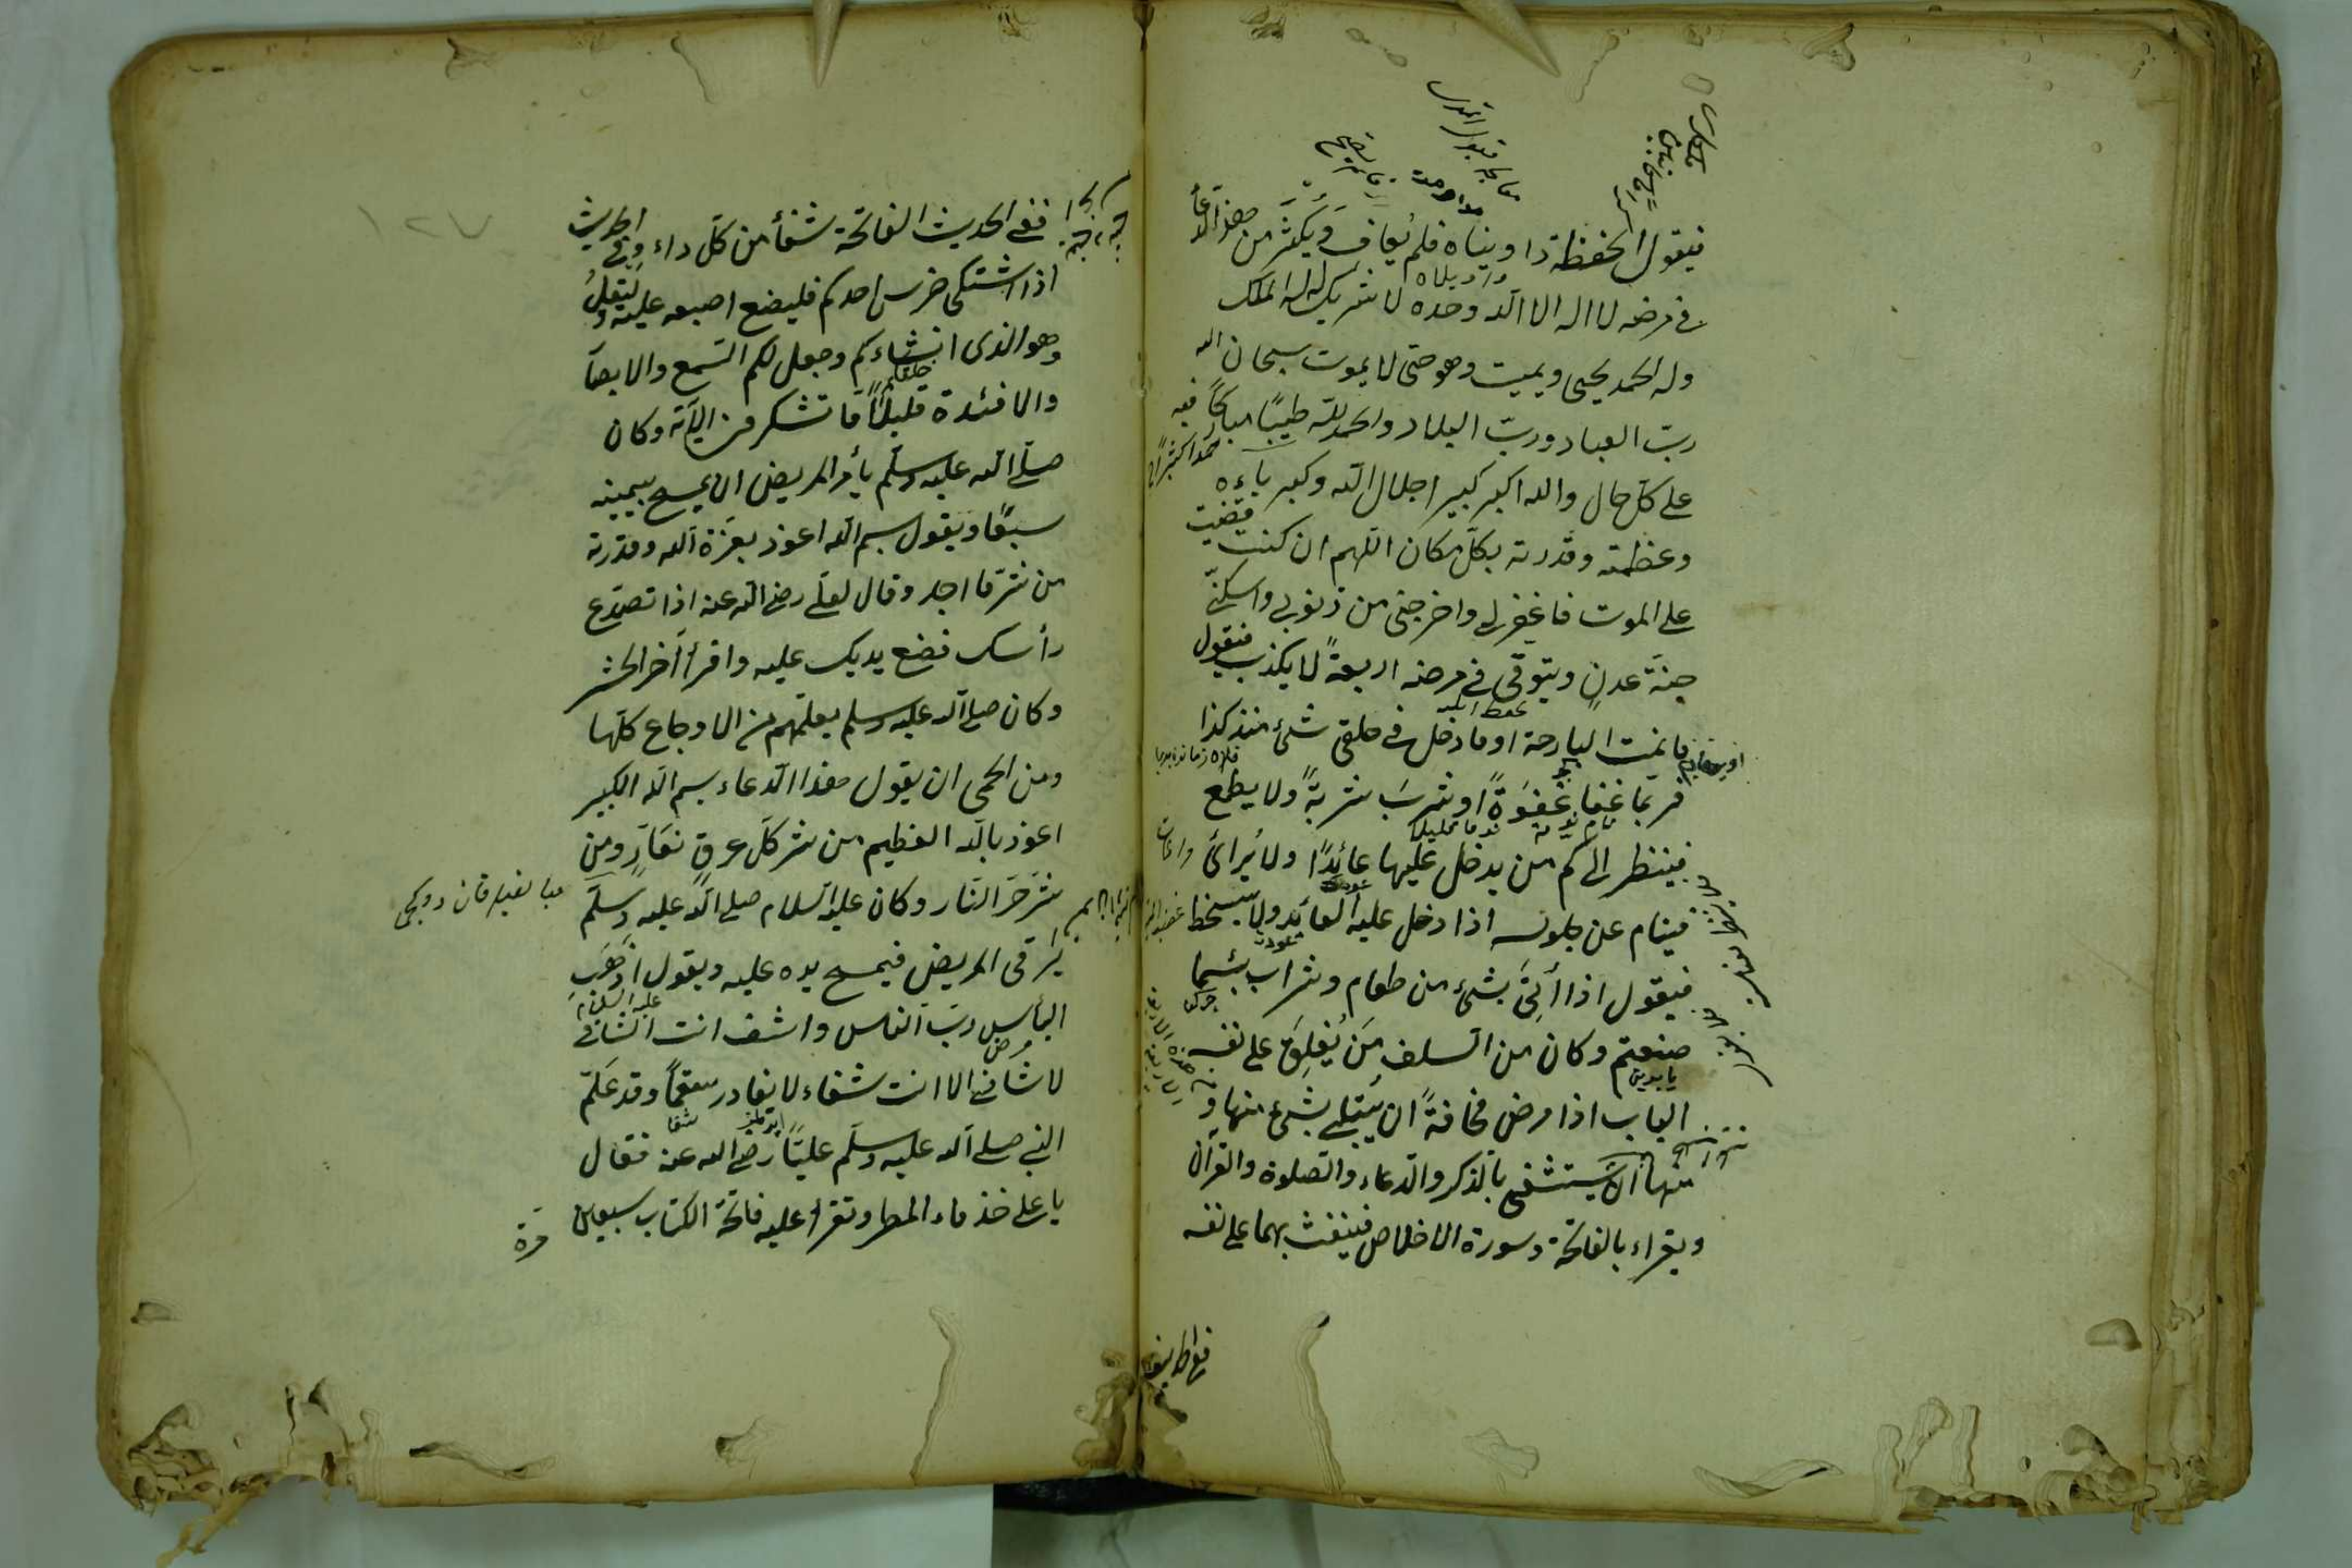 فيقول الحفظة داويناه فلم يعاف ويكثر من هذا الدعاء
في مرضه لا اله الا الله وحده لا شريك له له الملك
وله الحمد يحيى ويميت وهو حى لا يموت سبحان الله
ربّ العباد وربّ البلاد والحمد لله طيبًا مباركًا فيه
حمدا كثيرًا
على كلّ حال والله اكبر كبير اجلال الله وكبرياءه
وعظمته وقدرته بكلّ مكان اللّهم ان كنت قضيت
على الموت فاغفر لى واخرجنى من ذنوبى واسكنّى
جنّة عدنٍ ويتوقّى فى مرضه اربعةً لا يكذب فيقول
ما نمت البارحة او ما دخل فى حلقى شئ منذ كذا
فربّما غفا غَفْوَةً او شرب شربةً ولا يطمع
فينظر الى كم من يدخل عليها عائدًا ولا يُرائى
فينام عن جلوسه اذا دخل عليه العائد ولا يسخط
فيقول اذا أُتِىَ بشئ من طعام وشراب بئسما
صنعتم وكان من السلف مَنْ يُغلِقُ على نفسه
الباب اذا مرض مخافةً ان يُبتلى بشئ منها و
منها ان يستشفى بالذكر والدعاء والصلوة والقرآن
ويقراء بالفاتحة وسورة الاخلاص فينفث بهما على نفسه
١٢٧
ففى الحديث الفاتحة شفأ من كلّ داء وفى الحديث
اذا اشتكى ضرس احدكم فليضع اصبعه عليه وليقل
وهو الذى انشاءكم وجعل لكم السّمع والابصا
والافئدة قليلًا ما تشكرون الآية وكان
صلّى الله عليه وسلّم يأمر المريض ان يمسح بيمينه
سبعًا ويقول بسم الله اعوذ بعزّة الله وقدرته
من شرّ ما اجد وقال لعلّى رضى الله عنه اذا تصدّع
رأسك فضع يديك عليه واقرأ آخر الحشر
وكان صلى الله عليه وسلم يعلّمهم من الاوجاع كلّها
ومن الحمى ان يقول هذا الدعاء بسم الله الكبير
اعوذ بالله العظيم من شر كلّ عرقٍ نعّارٍ ومن
شر حر النّار وكان عليه السلام صلى الله عليه وسلّم
يرقى المريض فيمسح يده عليه ويقول اذهب
البأس ربّ الناس واشف انت الشافى
لا شافى الا انت شفاء لا يغادر سقمًا وقد علّم
النبى صلى الله عليه وسلّم عليًّا رضى الله عنه فقال
يا على خذ ماء المطر وتقرأ عليه فاتحة الكتاب سبعين
مرة